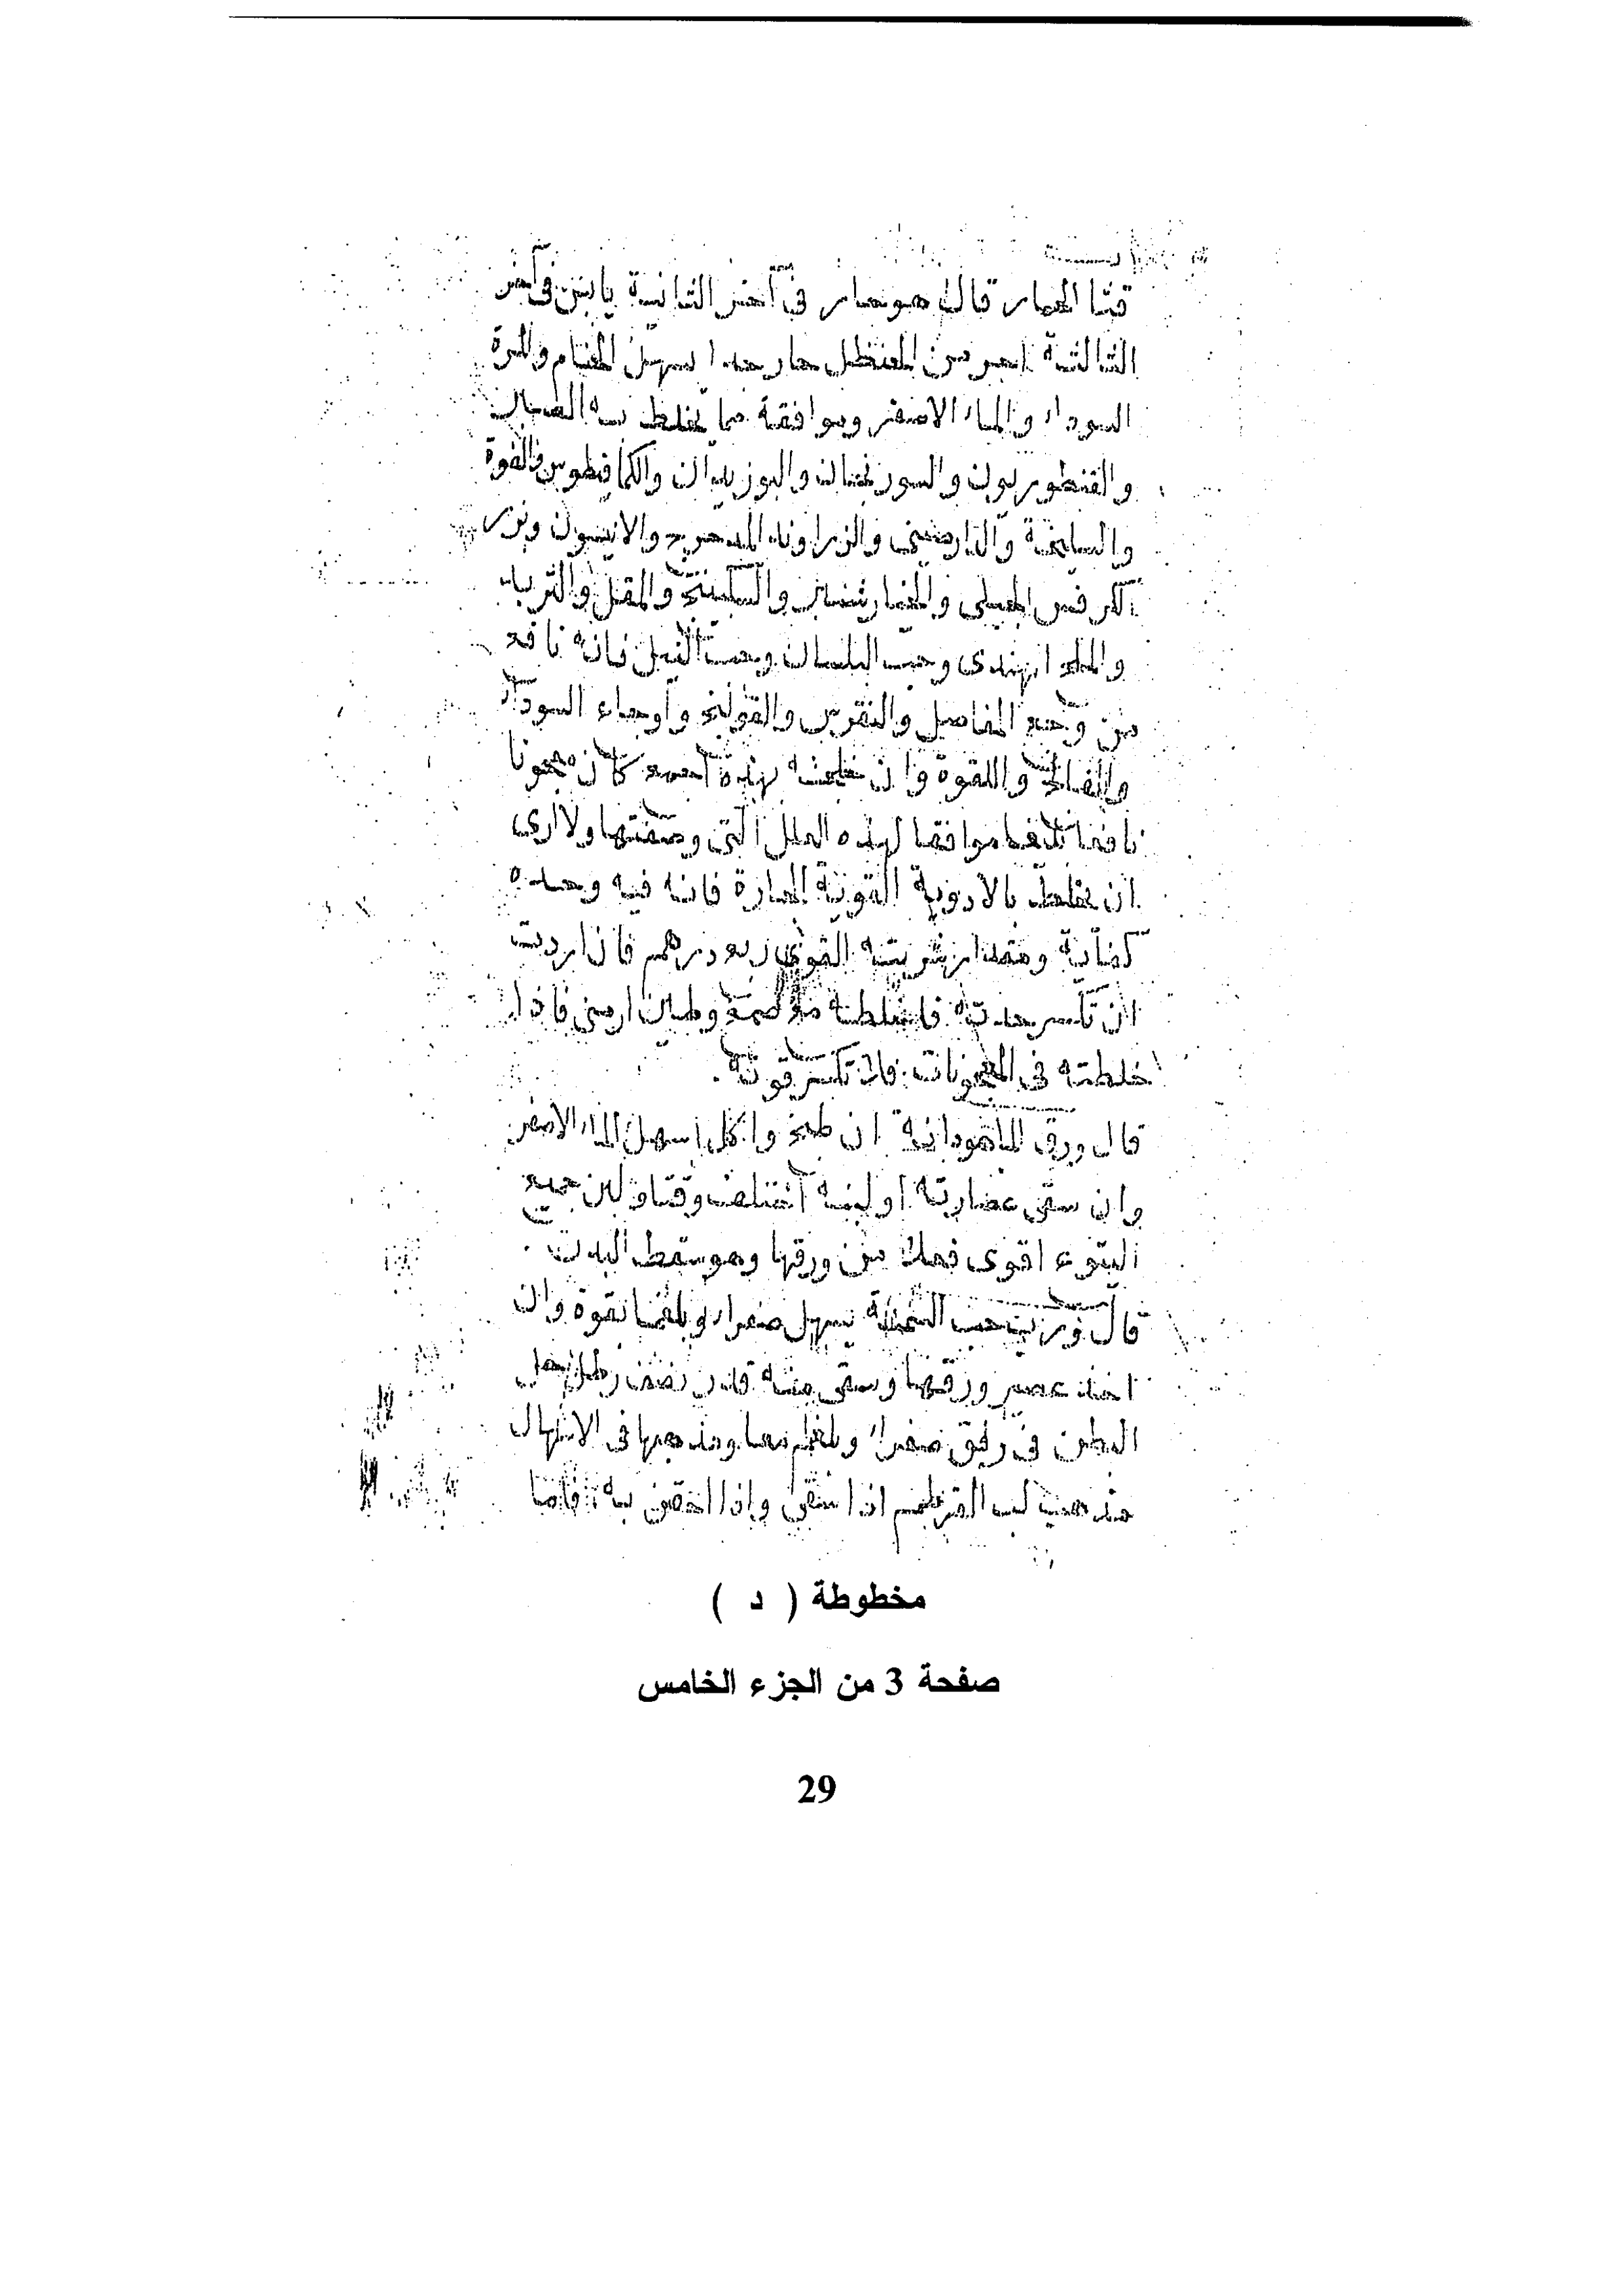 قثا الحمار قال هو حار في آخر الثانية يابس في آخر
الثالثة احر من الحنظل حار جدا يسهل الخام والمرة
السوداء والماء الاصفر ويوافقه مما يخلط به الصبر
والقنطوريون والسورنجان والبوزيدان والكمافيطوس والفوة
والسليخة والدارصيني والزراوند المدحرج والانيسون وبزر
الكرفس الجبلي والخيارشنبر والسكبينج والمقل والتربد
والملح الهندي وحب البلسان وحب النيل فانه نافع
من وجع المفاصل والنقرس والقولنج وأوجاع السوداء
والفالج واللقوة وان خلطته بهذه اجمع كان معجونا
نافعا موافقا لهذه العلل التي وصفتها ولا ارى
ان يخلط بالادوية القوية الحارة فانه فيه وحده
كفاية ومقدار شربته القوي ربع درهم فان اردت
ان تكسر حدته فاخلطه مع صمغ وطين ارمني فاذا
خلطته في المعجونات فلا تكسر قوته.
قال ورق الماهودانة ان طبخ واكل اسهل الماء الاصفر
وان سقي عصارته او لبنه اختلف وقتا ولبن جميع
اليتوع اقوى فعلا من ورقها وهو سقط البدن.
قال وزيت حب السمنة يسهل صفراء وبلغما بقوة وان
اخذ عصير ورقها وسقي منه قدر نصف رطل
البطن في رفق صفراء وبلغم معا ومذهبها في الاسهال
مذهب لب القرطم اذا سقي واذا احتقن به فاما
مخطوطة ( د )
صفحة 3 من الجزء الخامس
29